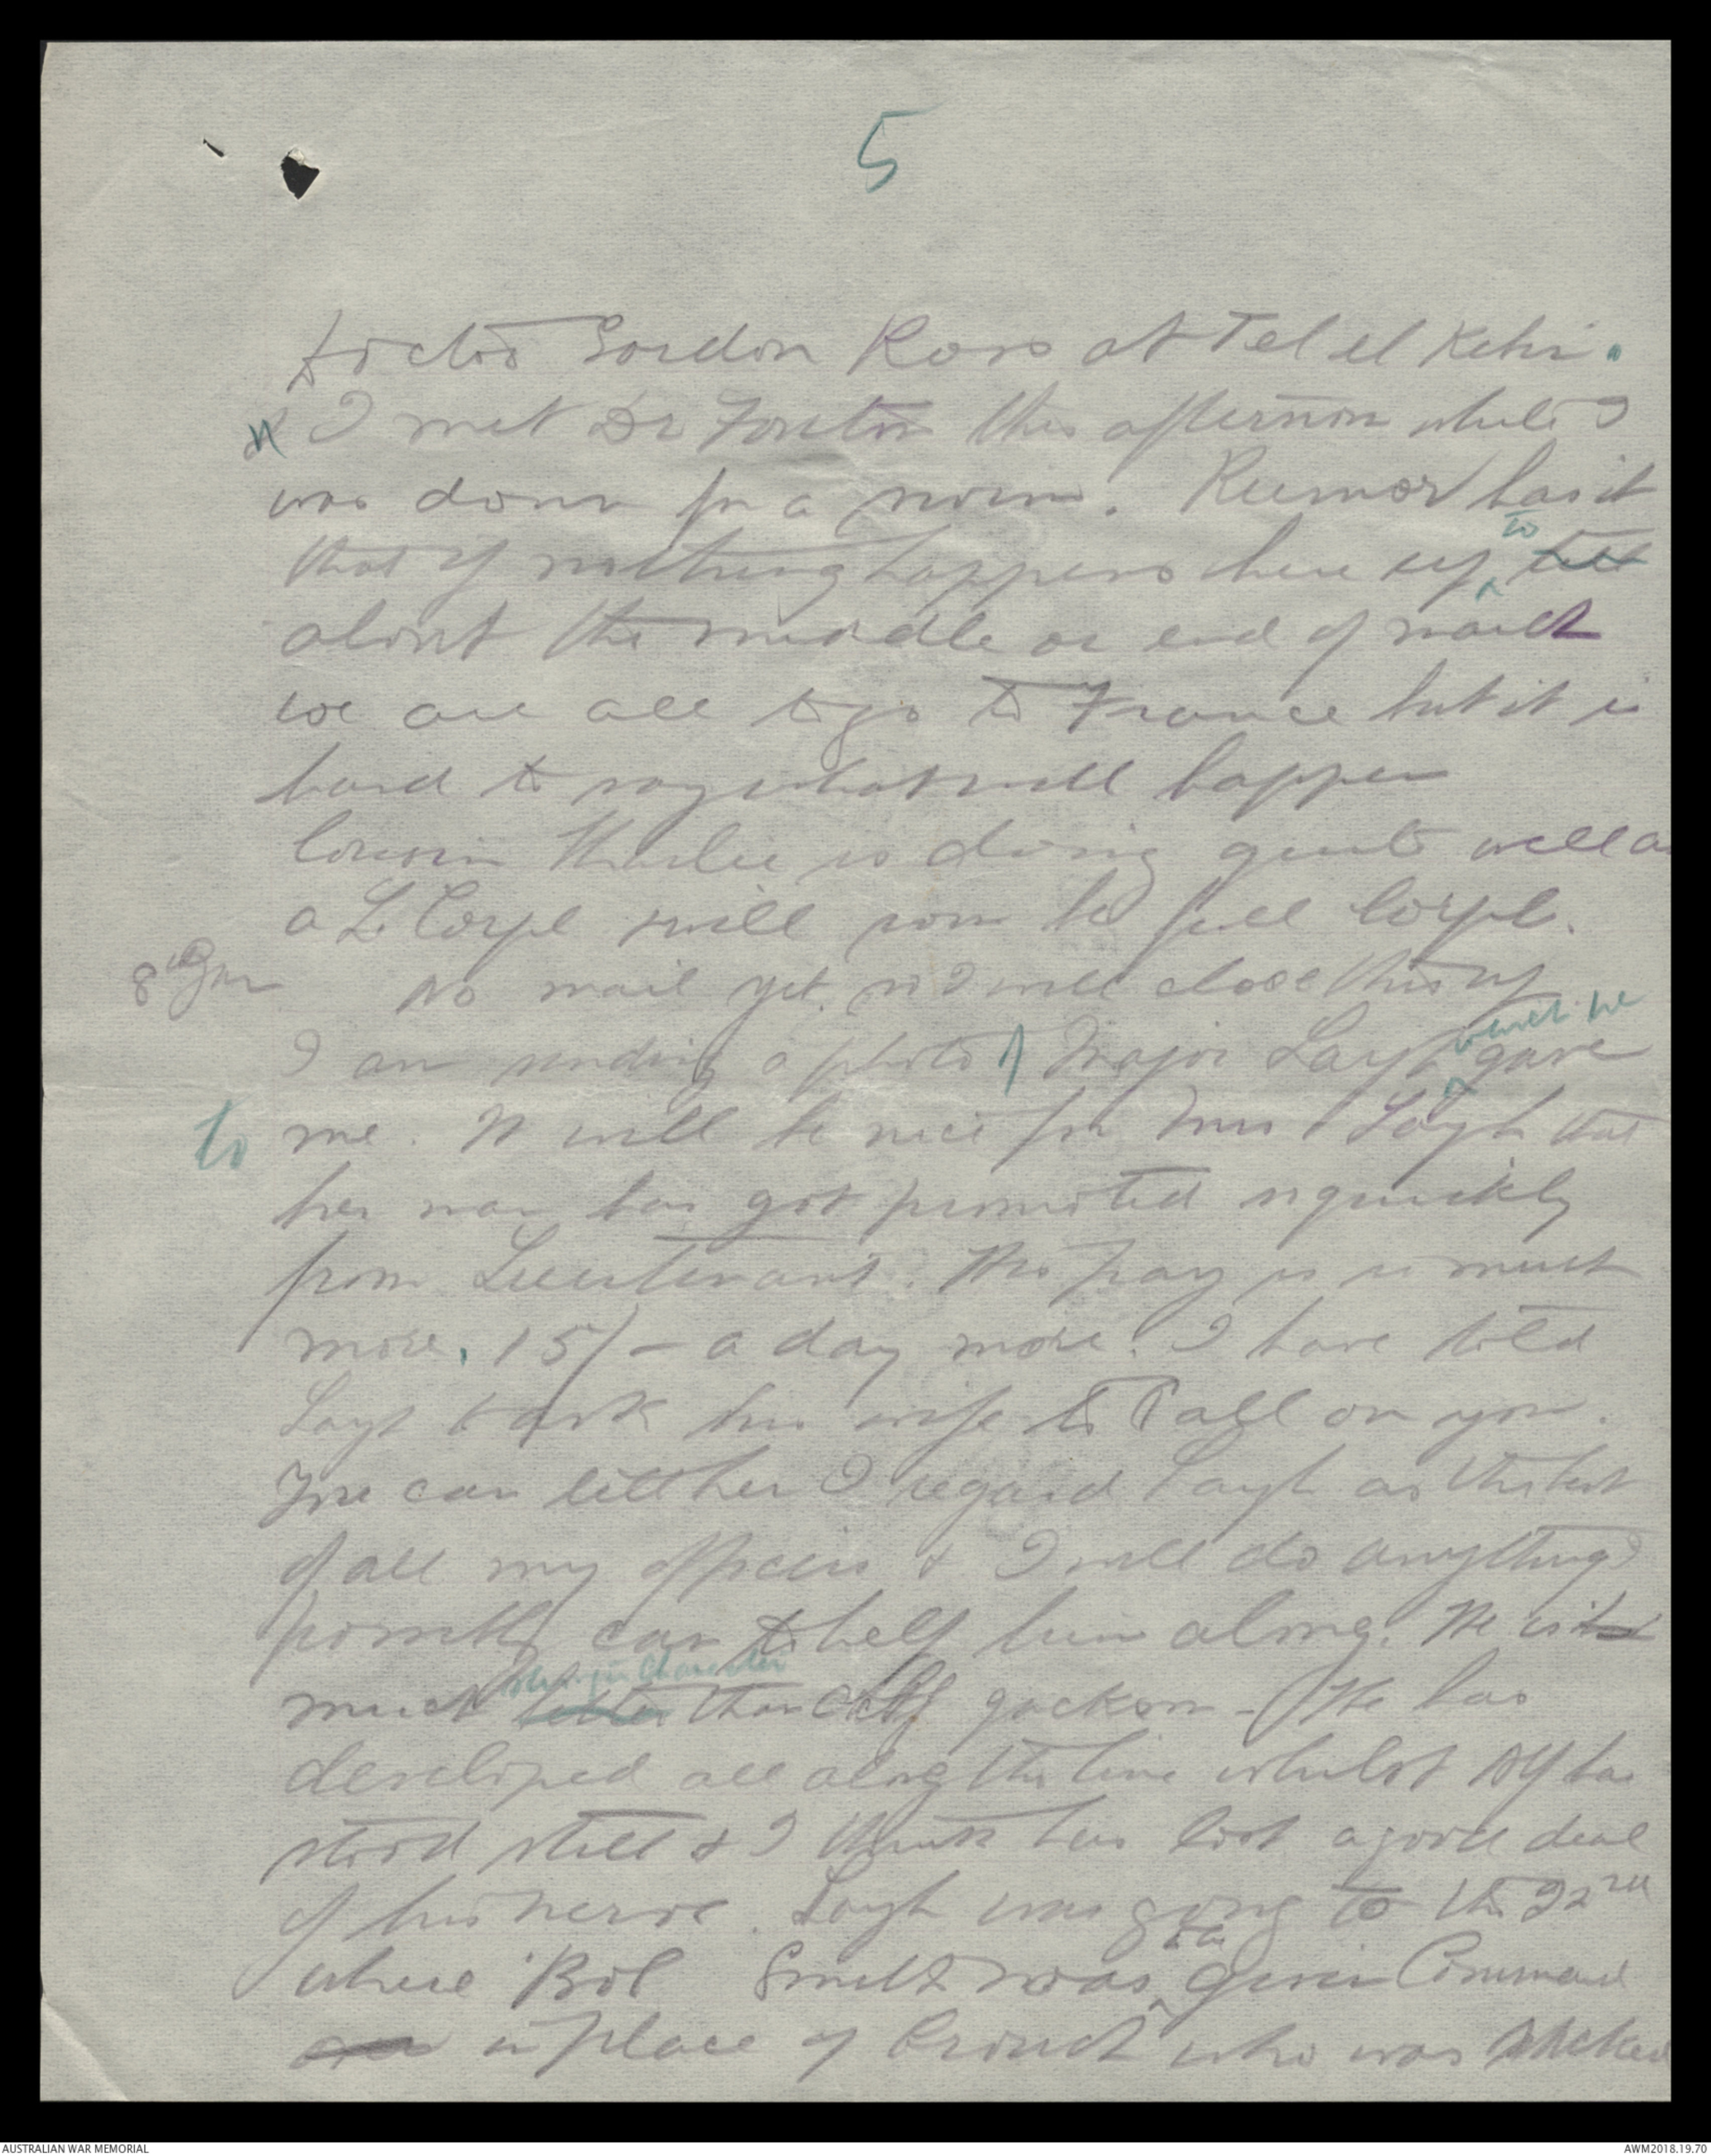 5
Doctor Gordon Ross at Tel el Kebir.
I met Dr Forster this afternoon while I
was down for a swim. Rumor has it
that if nothing happens here up to till
about the middle or end of March
we are all to go to France but it is
hard to say what will happen
Cousin Charlie is doing quite well as
a L. Corpl & will soon be full Corpl.
8th Jan No mail yet, so I will close this up
I am sending a photo of Major Layh which he gave
to me. It will be nice for Mrs Layh that
her man has got promoted so quickly
from Lieutenant. The pay is so much
more. 15/- a day more. I have told
Layh to ask his wife to call on you.
You can tell her I regard Layh as the best
of all my officers & I will do anything I
possibly can to help him along. He is
much stronger character better than Alf Jackson - He has
developed all along the line whilst Alf has
stood still & I think has lost a good deal
of his nerve. Layh was going to the 22nd
where Bob Smith was given Command
in place of Crouch who was
AUSTRALIAN WAR MEMORIAL
AWM2018.19.70